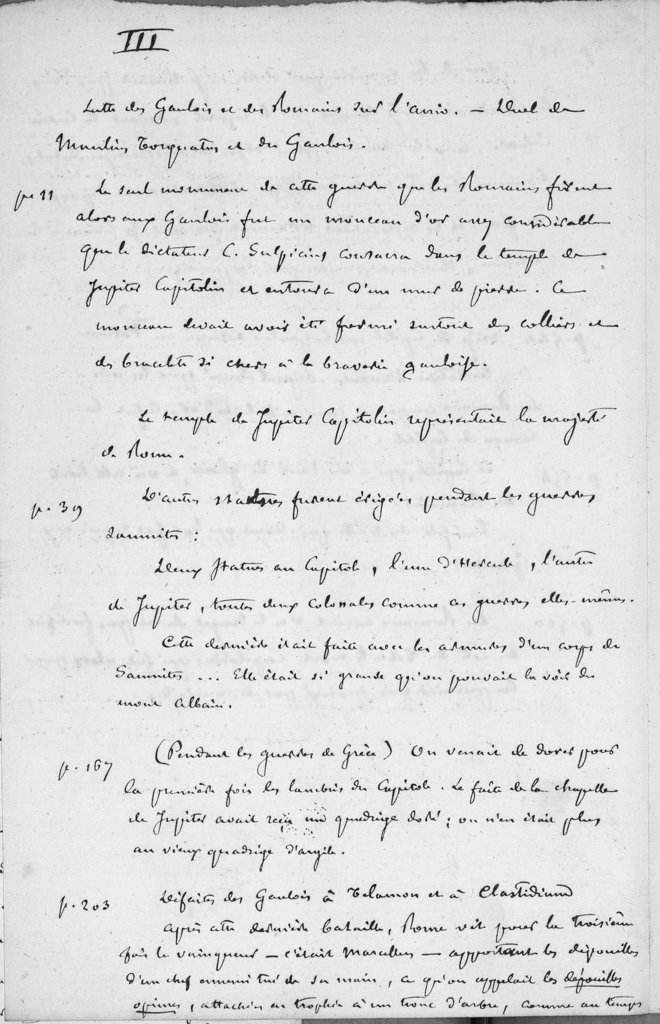 III
Lutte des Gaulois et des Romains sur l'anio. — Duel de
Manlius Torquatus et du Gaulois.
p. 11 Le seul monument de cette guerre que les Romains firent
alors aux Gaulois fut un monceau d'or assez considérable
que le dictateur C. Sulpicius consacra dans le temple de
Jupiter Capitolin et entoura d'un mur de pierre. Ce
monceau devait avoir été formé surtout des colliers et
des bracelets si chers à la braverie gauloise.
Le temple de Jupiter Capitolin représentait la majesté
de Rome.
p. 39 D'autres statues furent érigées pendant les guerres
samnites :
Deux statues au Capitole, l'une d'Hercule, l'autre
de Jupiter, toutes deux colossales comme ces guerres elles-mêmes.
Cette dernière était faite avec les armures d'un corps de
Samnites ... Elle était si grande qu'on pouvait la voir du
mont Albain.
p. 167 (Pendant les guerres de Grèce) On venait de dorer pour
la première fois les lambris du Capitole. Le faîte de la chapelle
de Jupiter avait reçu un quadrige doré ; on n'en était plus
au vieux quadrige d'argile.
p. 203 Défaites des Gaulois à Télamon et à Clastidium
Après cette dernière bataille, Rome vit pour la troisième
fois le vainqueur — c'était Marcellus — apportant les dépouilles
d'un chef ennemi tué de sa main, ce qu'on appelait les dépouilles
opimes, attachées en trophée à un tronc d'arbre, comme au temps